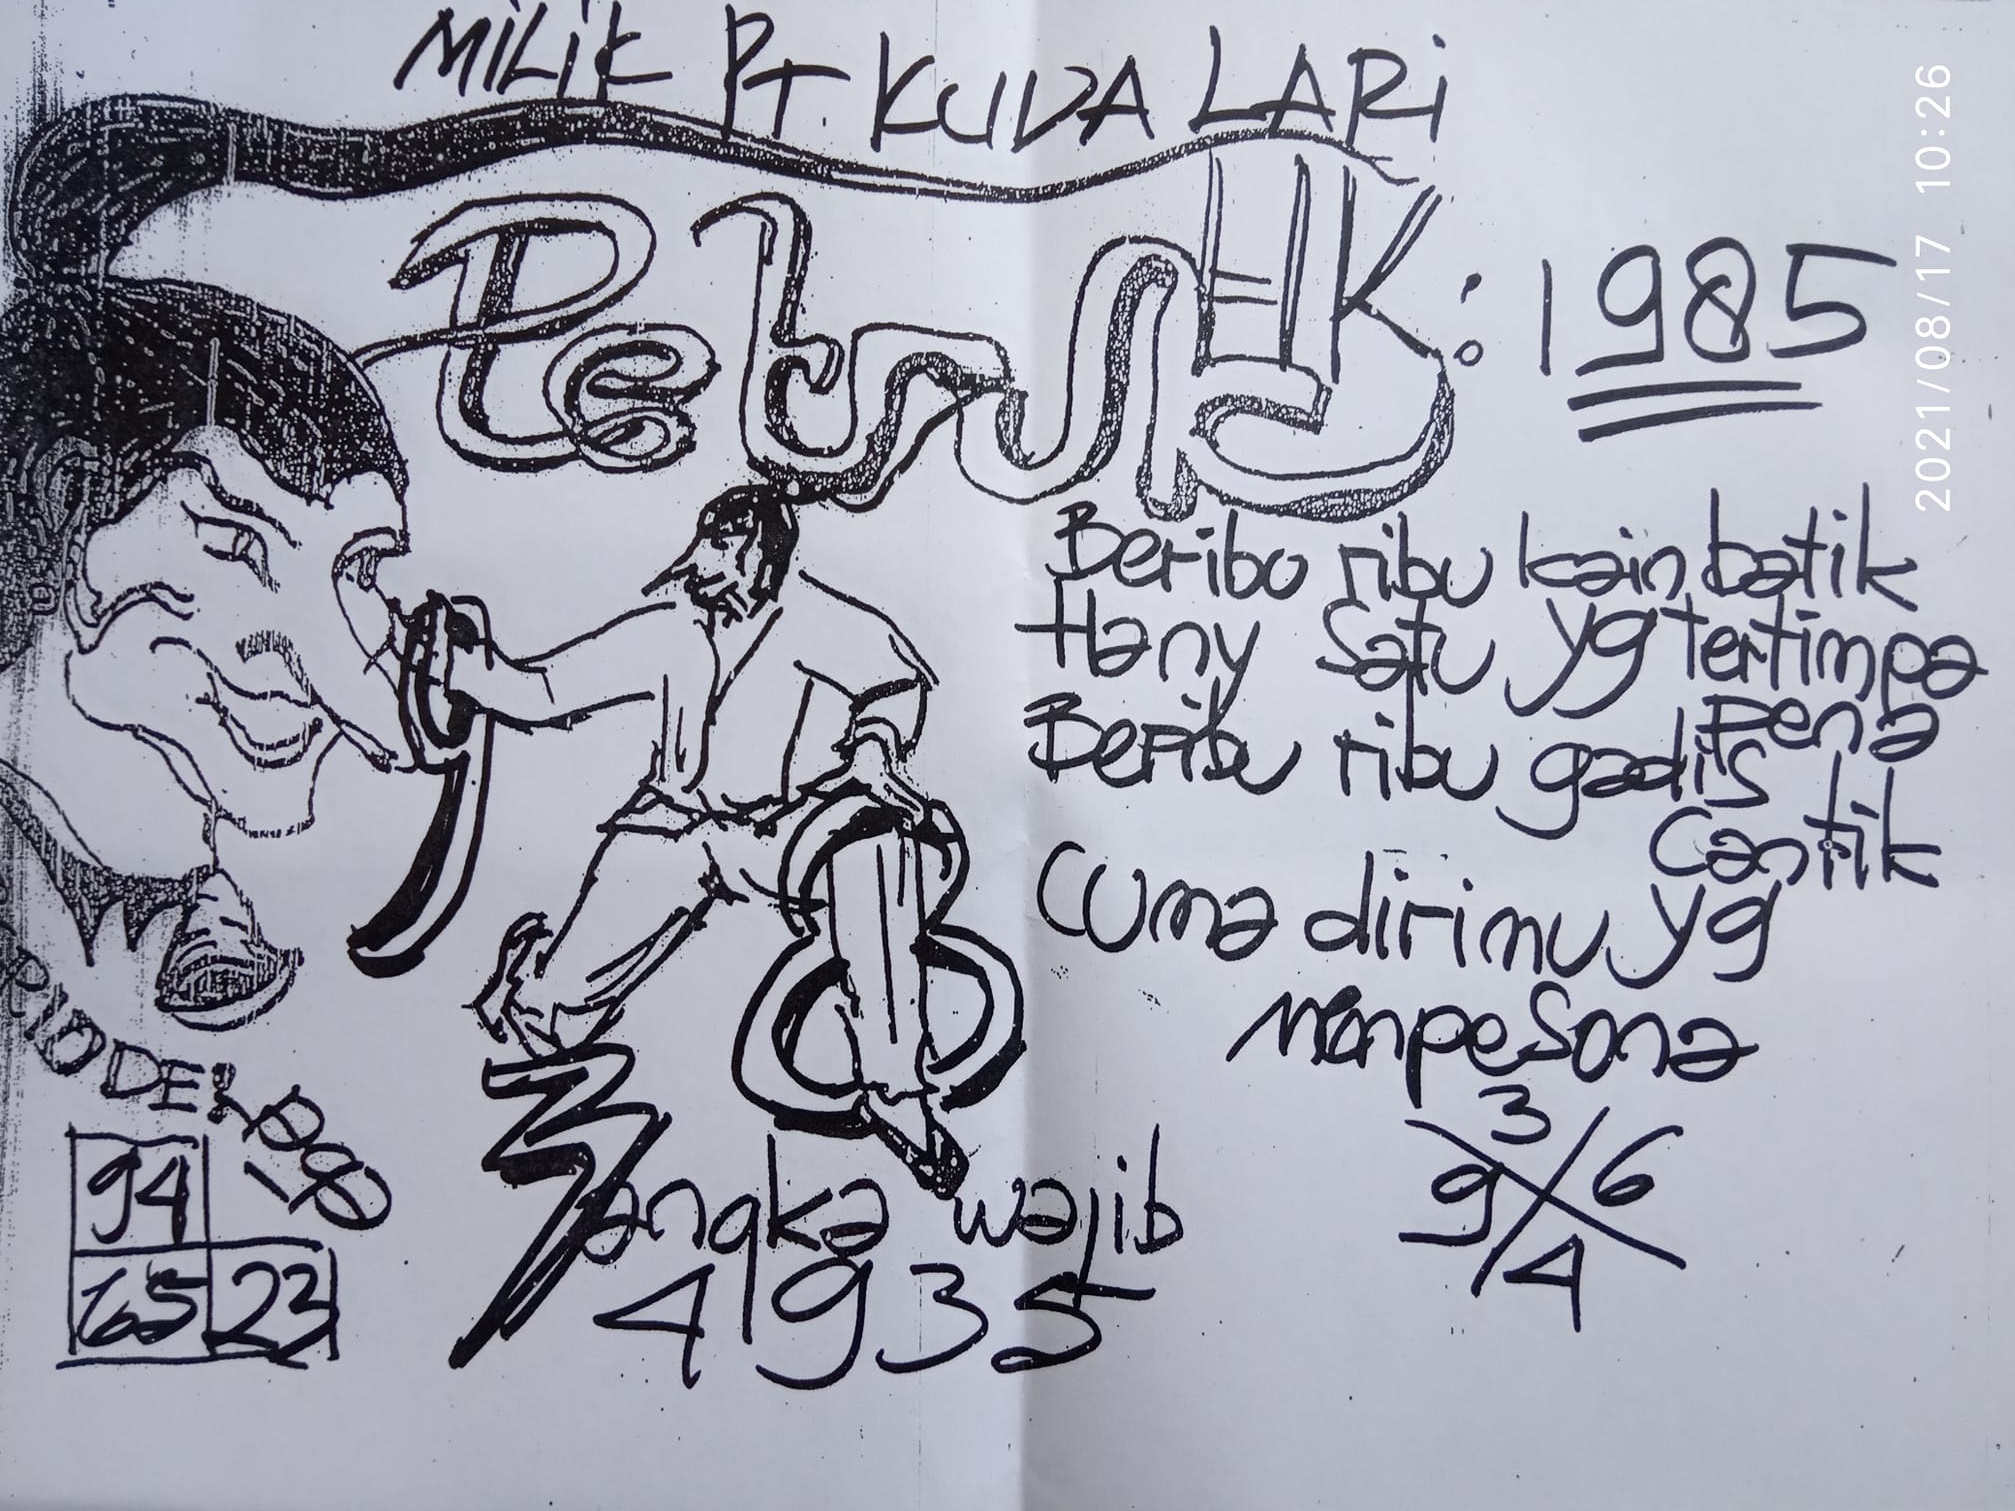 MILIK PT. KUDA LARI
Petruk : 1985
2021/08/17 10:26
Beribu ribu kain batik
Hany satu yg tertimpa
pena
Beribu ribu gadis
cantik
Cuma dirimu yg
menpesona
94
65 23
angka wajib
4935
3
9 6
4